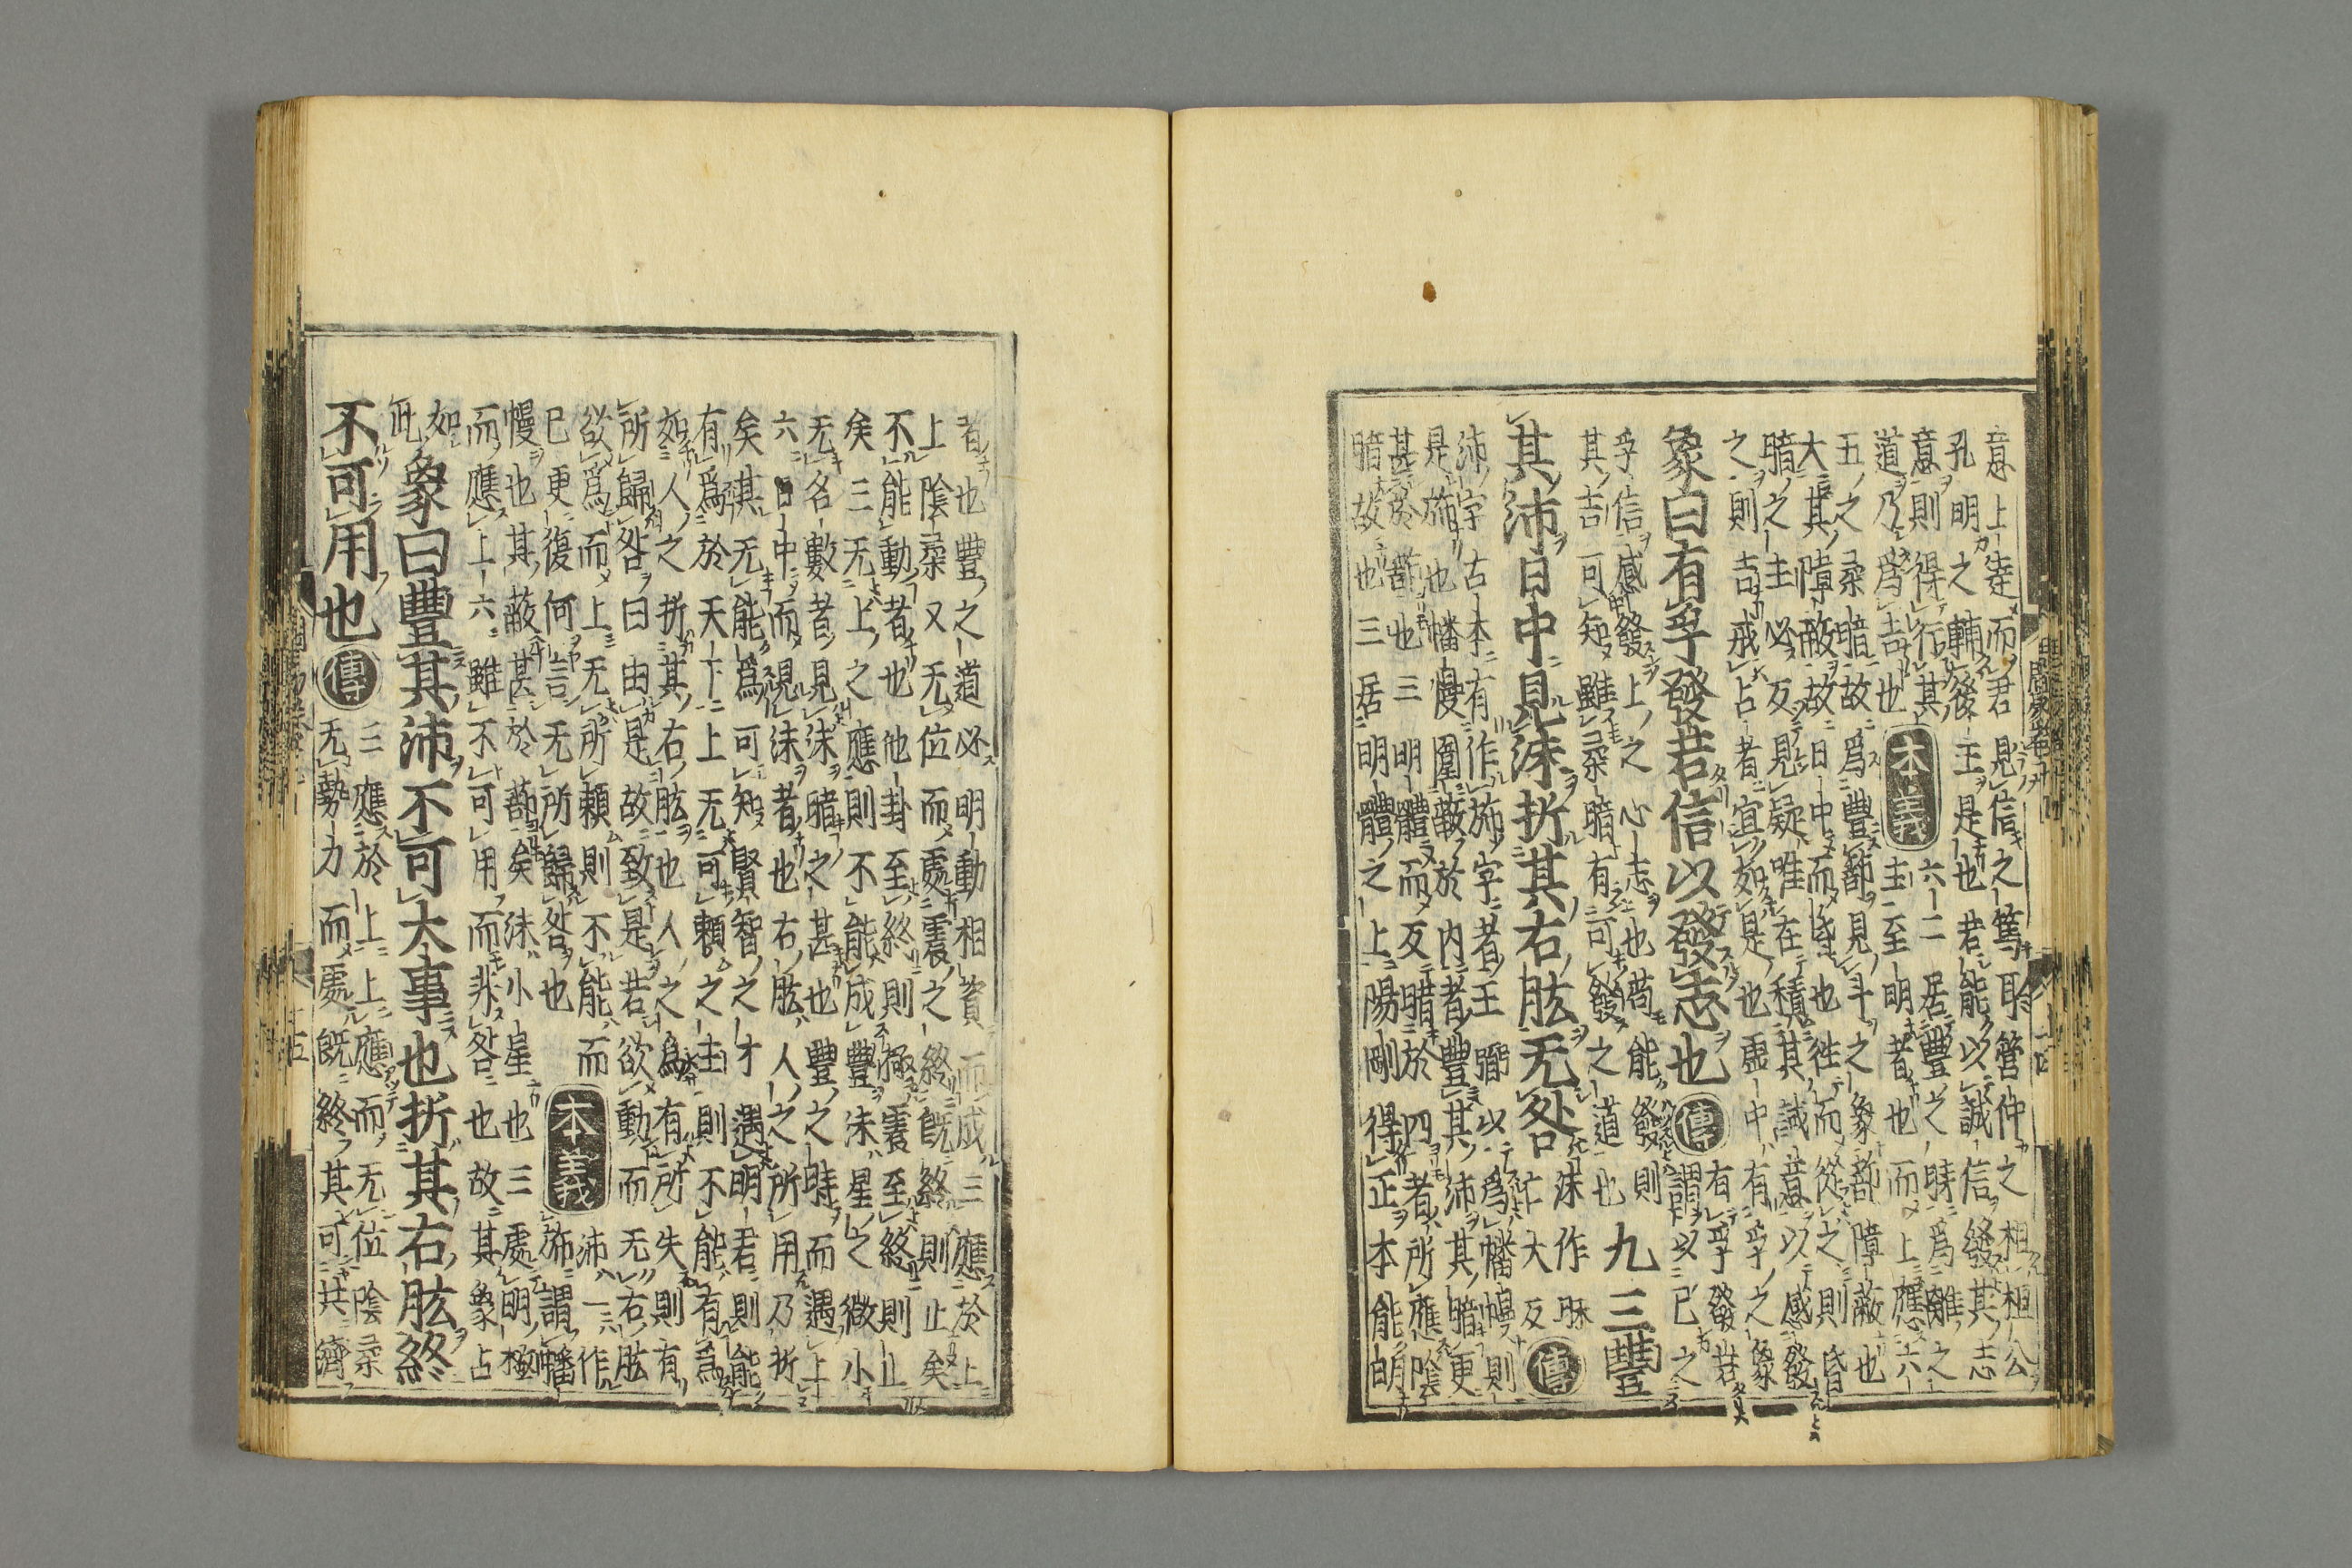 意上達而君見信之篤耶管仲之相桓公
孔明之輔後主是也君能以誠信發其志
意則得行其
道乃爲吉也
本義
六二居豐之時爲離之
主至明者也而上應六
五之柔暗故爲豐蔀見斗之象蔀障蔽也
大其障蔽故日中而昏也徃而從之則昏
暗之主必反見疑唯在積其誠意以感發
之則吉戒占者宜如是也虛中有孚之象
象曰有孚發若信以發志也
傳
有孚發若
謂以己之
孚信感發上之心志也苟能發則
其吉可知雖柔暗有可發之道也
九三豐
其沛日中見沬折其右肱无咎
沬作昧
亡大反
傳
沛字古本有作旆字者王弼以爲幡幔則
是旆也幡幔圍蔽於内者豐其沛其暗更
甚於蔀也三明體而反暗於四者所應陰
暗故也三居明體之上陽剛得正本能明
者也豐之道必明動相資而成三應於上
上陰柔又无位而處震之終既終則止矣
不能動者也他卦至終則極震至終則止
矣三无上之應則不能成豐沬星之微小
无名數者見沬暗之甚也豐之時而遇上
六日中而見沬者也右肱人之所用乃折
矣其无能爲可知賢智之才遇明君則能
有爲於天下上无可賴之主則不能有爲
如人之折其右肱也人之爲有所失則有
所歸咎曰由是故致是若欲動而无右肱
欲爲而上无所賴則不能而
已更復何言无所歸咎也
本義
沛一作
旆謂幡
幔也其蔽甚於蔀矣沬小星也三處明極
而應上六雖不可用而非咎也故其象占
如
此
象曰豐其沛不可大事也折其右肱終
不可用也
傳
三應於上上應而无位陰柔
无勢力而處既終其可共濟